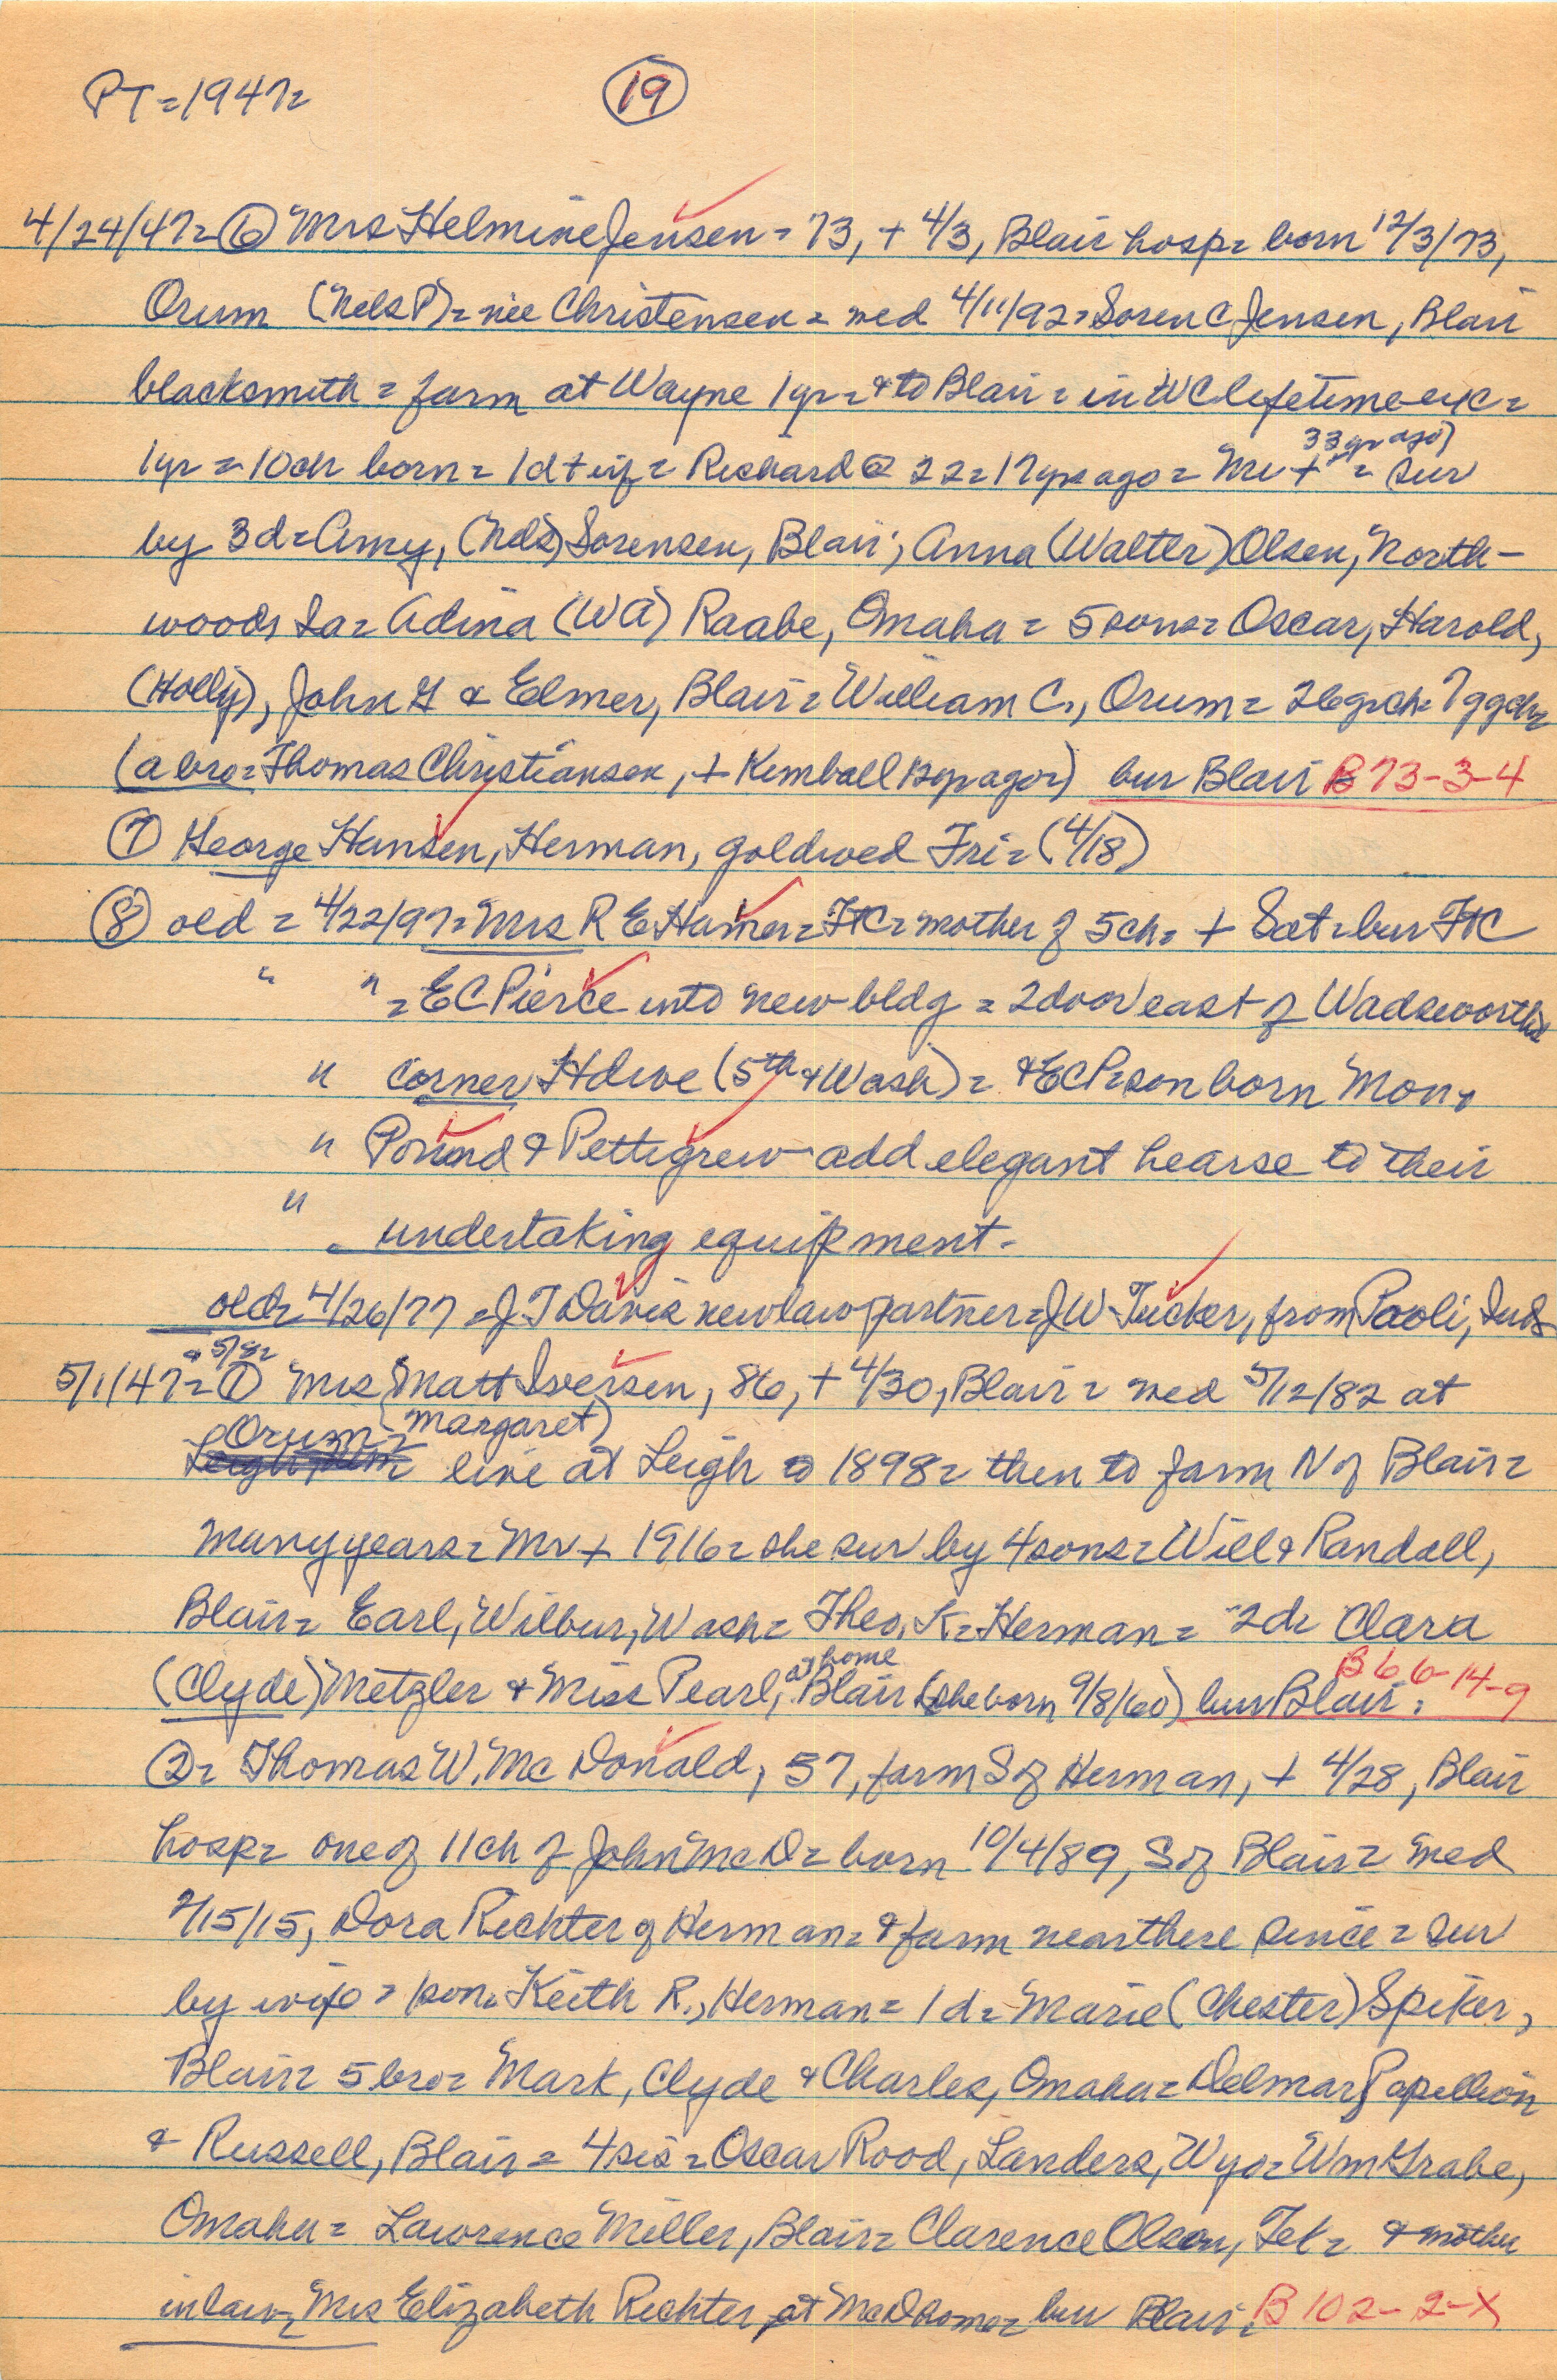 PT=1947= 19
4/24/47= ⑥ Mrs Helmine Jensen = 73, + 4/3, Blair hosp= born 12/3/73,
Orum (Nels P)= nee Christensen = wed 4/11/92= Soren C Jensen, Blair
blacksmith = farm at Wayne 1 yr= & to Blair = in WC lifetime exc =
33 yr ago)
1 yr = 10 ch born = 1 d + inf = Richard @ 22 = 17 yrs ago = Mr + " = sur
by 3 d= Amy, (Nels) Sorensen, Blair; Anna (Walter) Olsen, North-
woods Ia= Adina (WA) Raabe, Omaha = 5 sons= Oscar, Harold,
(Holly), John G & Elmer, Blair = William C., Orum = 26 grch= 7 ggch=
(a bro= Thomas Christiansen, + Kimball yr ago=) bur Blair B 73-3-4
⑦ George Hansen, Herman, goldwed Fri= (4/18)
⑧ old = 4/22/97= Mrs R E Hamer= FtC= mother of 5 ch= + Sat= bur FtC
" " = E C Pierce into new bldg = 2 door east of Wadsworths
" corner Hdwe (5th & Wash) = & ECP= son born Mon.
" Pound & Pettegrew add elegant hearse to their
" undertaking equipment.
old= 4/26/77 = J T Davis new law partner= J W Tucker, from Paoli, Ind
& 5/8=
5/1/47= ① Mrs Matt Iversen, 86, + 4/30, Blair = wed 5/12/82 at
Orum = (Margaret)
live at Leigh to 1898= then to farm N of Blair=
many years= Mr + 1916= she sur by 4 sons= Will & Randall,
Blair= Earl, Wilbur, Wash= Theo. K= Herman= 2 d= Clara
at home B 66-14-9
(Clyde) Metzler & Miss Pearl, Blair (she born 9/8/60) bur Blair.
②= Thomas W. McDonald, 57, farm S of Herman, + 4/28, Blair
hosp= one of 11 ch of John McD= born 10/4/89, S of Blair= wed
2/15/15, Dora Rechter of Herman= & farm near there since = sur
by wife = 1 son= Keith R., Herman= 1 d= Marie (Chester) Spiker,
Blair= 5 bro= Mark, Clyde & Charles, Omaha= Delmar, Papillion
& Russell, Blair = 4 sis = Oscar Rood, Landers, Wyo= Wm Grabe,
Omaha = Lawrence Miller, Blair= Clarence Olson, Tek= & mother
in law= Mrs Elizabeth Rechter at McD home= bur Blair. B 102-2-X